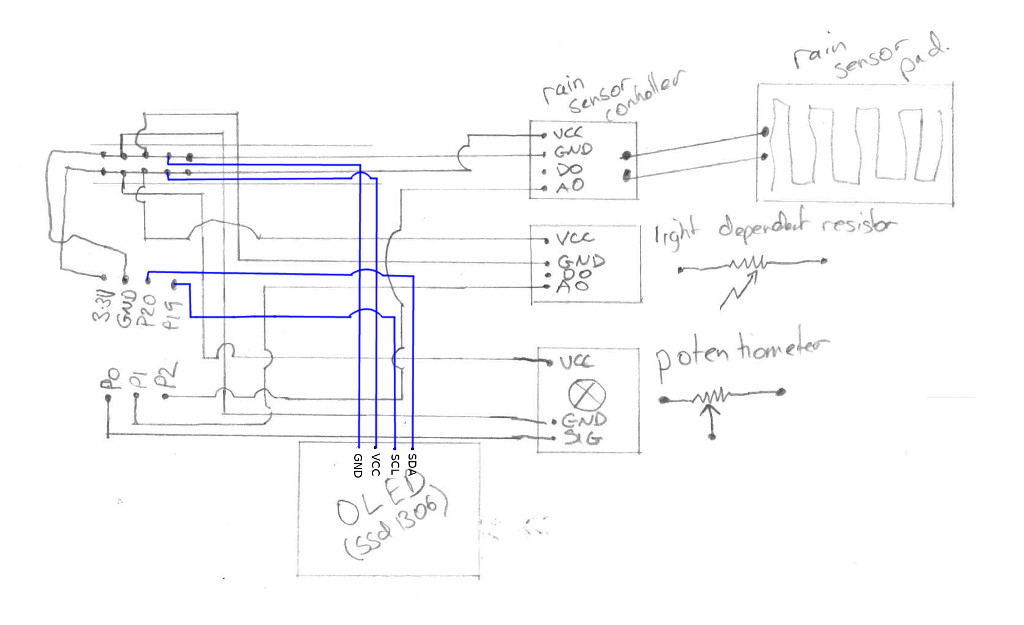 rain
sensor
pad.
rain
sensor
controller
VCC
GND
DO
AO
light dependent resistor
VCC
GND
DO
AO
3.3V
GND
P20
P19
potentiometer
VCC
GND
SIG
P0
P1
P2
GND
VCC
SCL
SDA
OLED
(ssd1306)